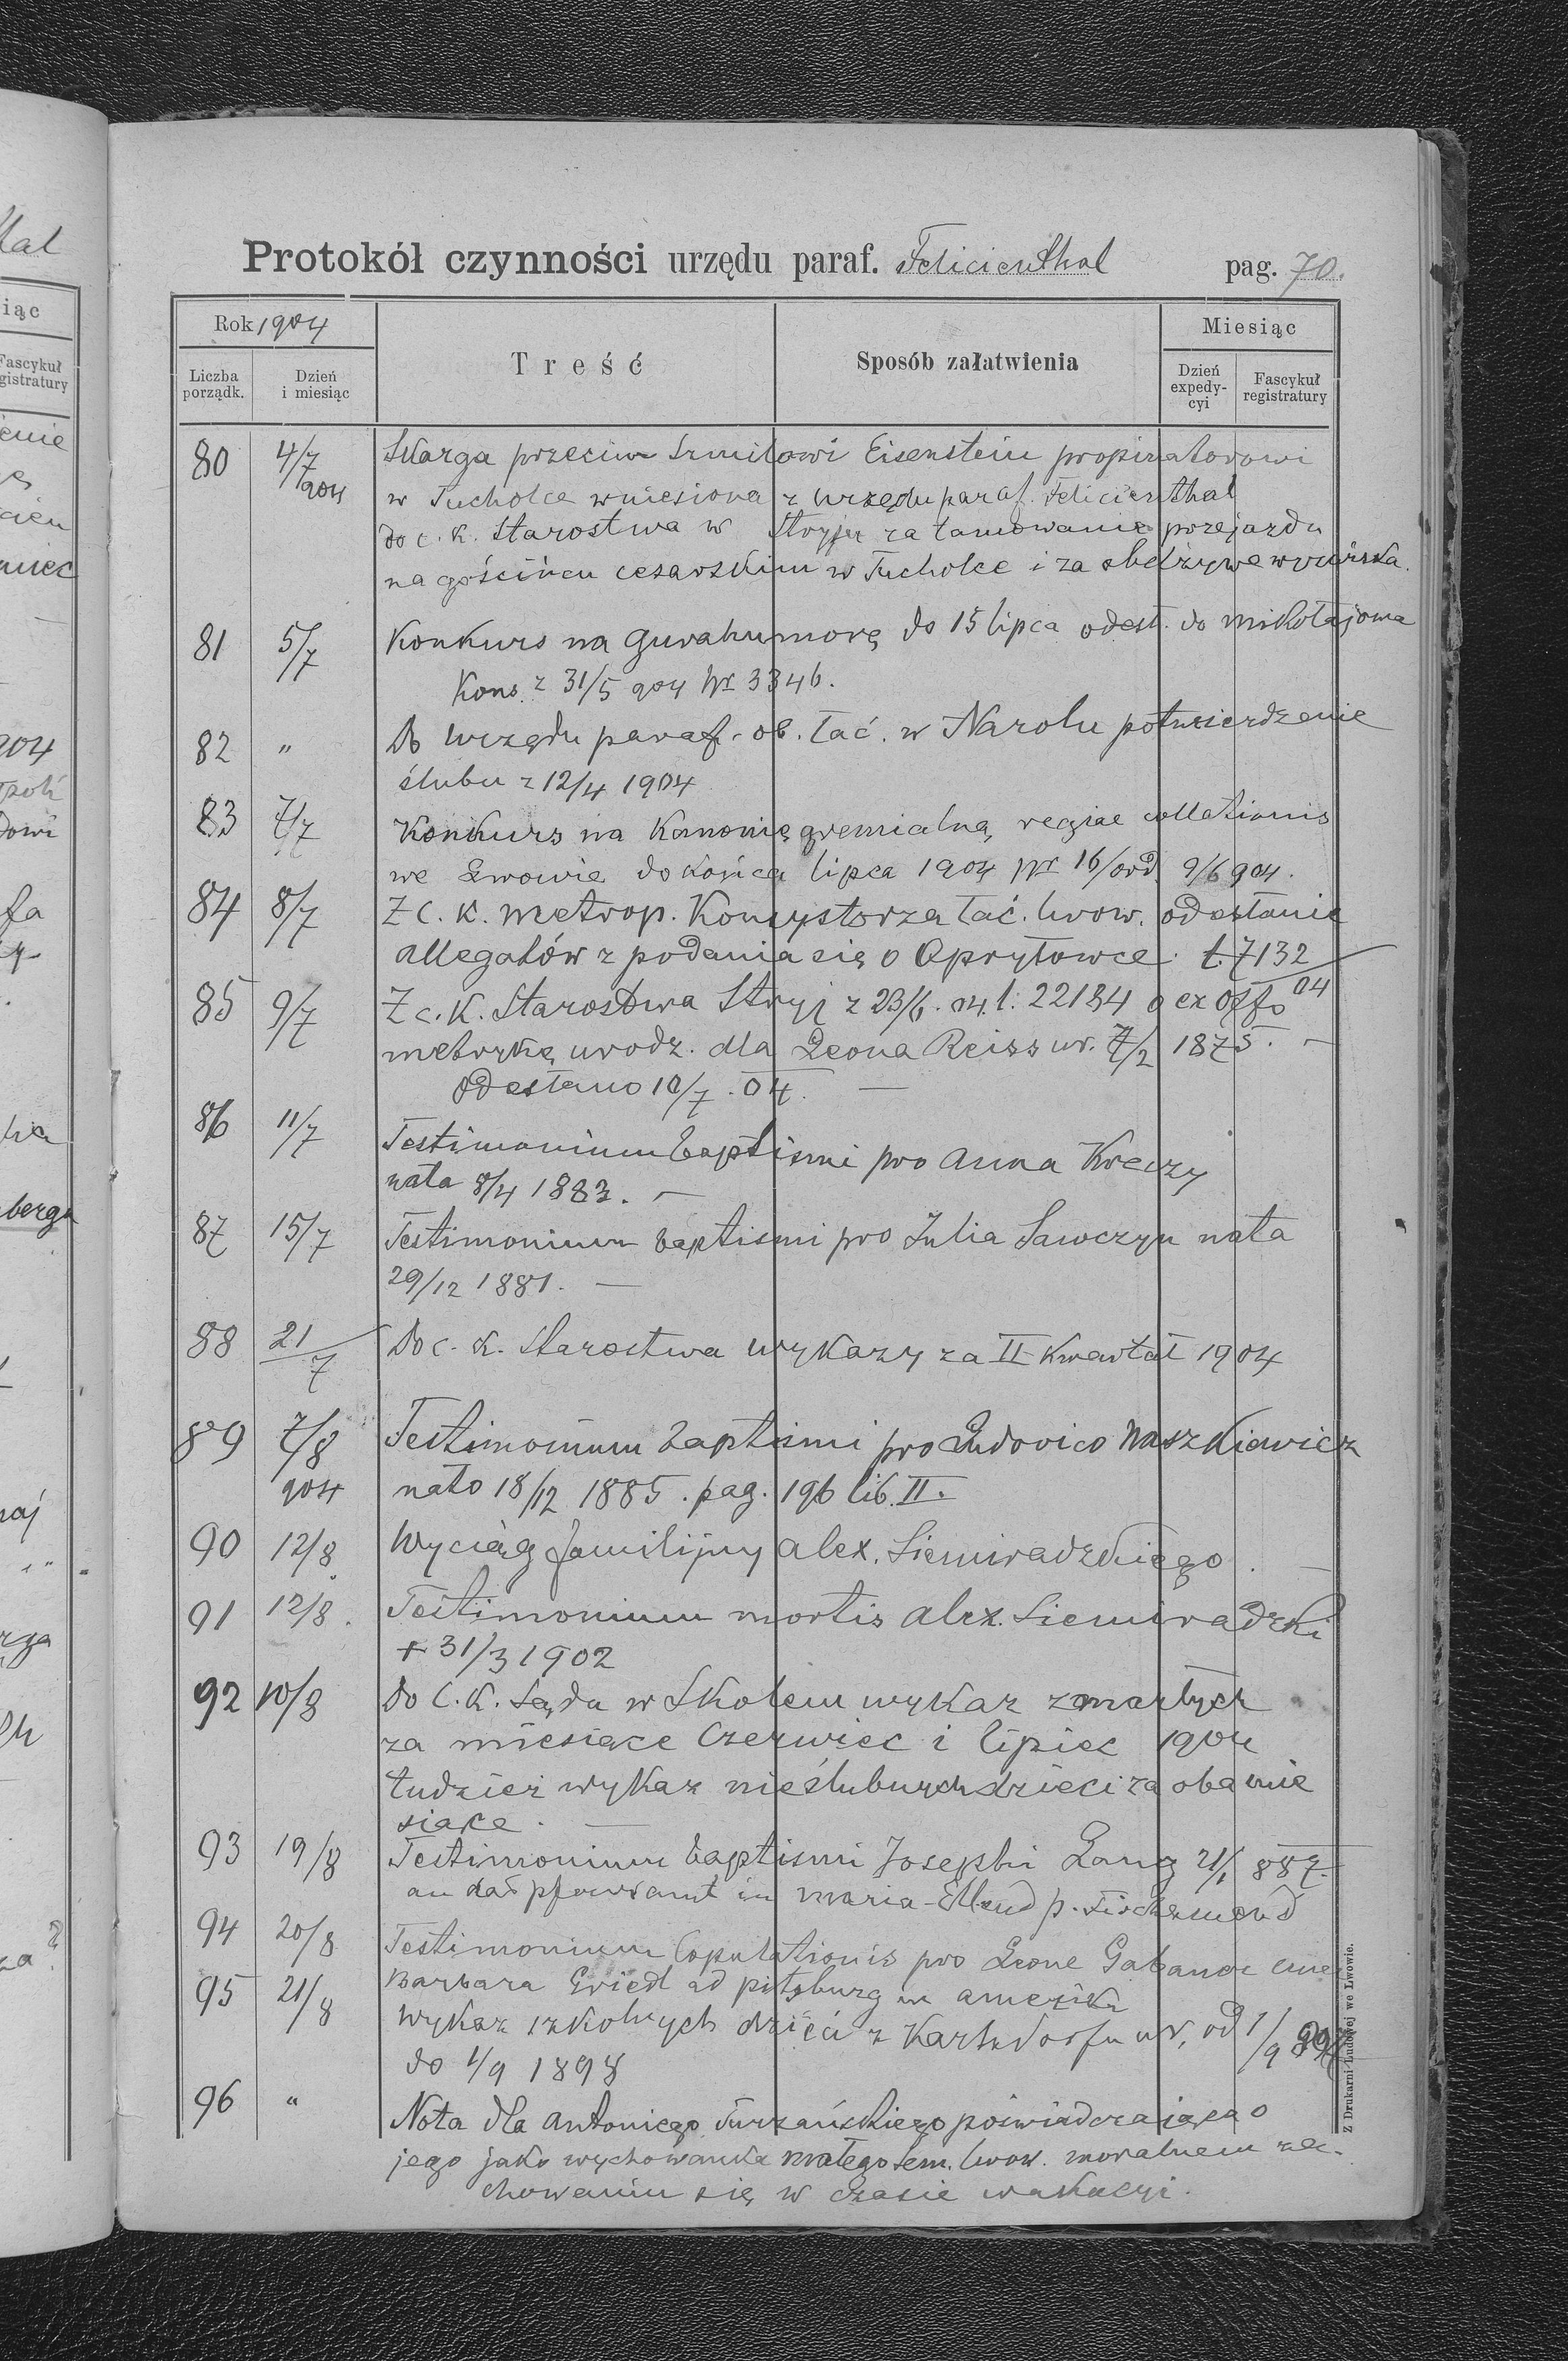 Protokół czynności urzędu paraf. Felicienthal pag. 70.
Rok 1904
Treść
Sposób załatwienia
Miesiąc
Liczba porządk.
Dzień i miesiąc
Dzień expedycyi
Fascykuł registratury
80 4/7 904 Skarga przeciw Srmilowi Eisenstein propinatorowi
w Tucholce wniesiona z urzędu paraf. Felicienthal
do c. k. Starostwa w Stryju za tamowanie przejazdu
na gościńcu cesarskim w Tucholce i za obelżywe wyzwiska.
81 5/7 Konkurs na Gurahumorę do 15 lipca odesł. do Mikołajowa
Kons. z 31/5 904 Nr 3346.
82 " Do Urzędu paraf. ob. łać. w Narolu potwierdzenie
ślubu z 12/4 1904
83 7/7 Konkurs na Kanonię gremialną regiae collationis
we Lwowie do końca lipca 1904 Nr 16/ord. 9/6 904.
84 8/7 Z c. k. metrop. Konsystorza łać. lwow. odesłanie
allegatów z podania się o Opryłowce. L. 7132/04
85 9/7 Z c. k. Starostwa Stryj z 23/6. 04. l. 22134 o ex offo
metrykę urodz. dla Leona Reiss ur. 7/2 1875. —
Odesłano 10/7. 04. —
86 11/7 Testimonium baptismi pro Anna Kreczy
nata 8/4 1883. —
87 15/7 Testimonium baptismi pro Julia Sawczyn nata
29/12 1881. —
88 21/7 Do c. k. Starostwa wykazy za II kwartał 1904
89 7/8 904 Testimonium baptismi pro Ludovico Naszkiewicz
nato 18/12 1885. pag. 196 lib. II.
90 12/8 Wyciąg familijny Alex. Siemiradzkiego. —
91 12/8. Testimonium mortis Alex. Siemiradzki
+ 31/3 1902
92 10/8 Do C. K. Sądu w Skolem wykaz zmarłych
za miesiące Czerwiec i lipiec 1904
tudzież wykaz nieślubnych dzieci za oba mie
siące. —
93 19/8 Testimonium baptismi Josephi Lang 21/1 887.
an das Pfarramt in Maria-Ellend p. Fischamend
94 20/8 Testimonium Copulationis pro Leone Gabanor cum
Barbara Griedl ad Pitsburg in Amerika
95 21/8 Wykaz szkolnych dzieci z Karlsdorfu ur. od 1/9
do 1/9 1898
96 " Nota dla Antoniego Turzańskiego poświadczająca o
jego jako wychowanka małego sem. lwow. moralnem za-
chowaniu się w czasie wakacyi.
Z Drukarni Ludowej we Lwowie.